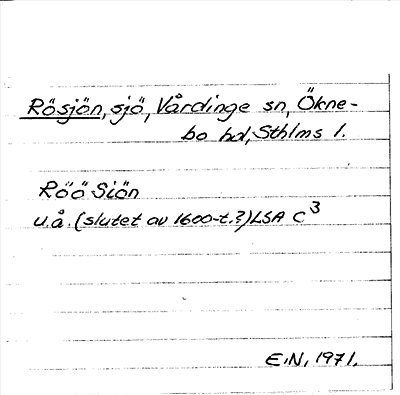 Rösjön, sjö, Vårdinge sn, Ökne-
bo hd, Sthlms l.
Röö Siön
u.å. (slutet av 1600-t.?) LSA C3
E.N, 1971.